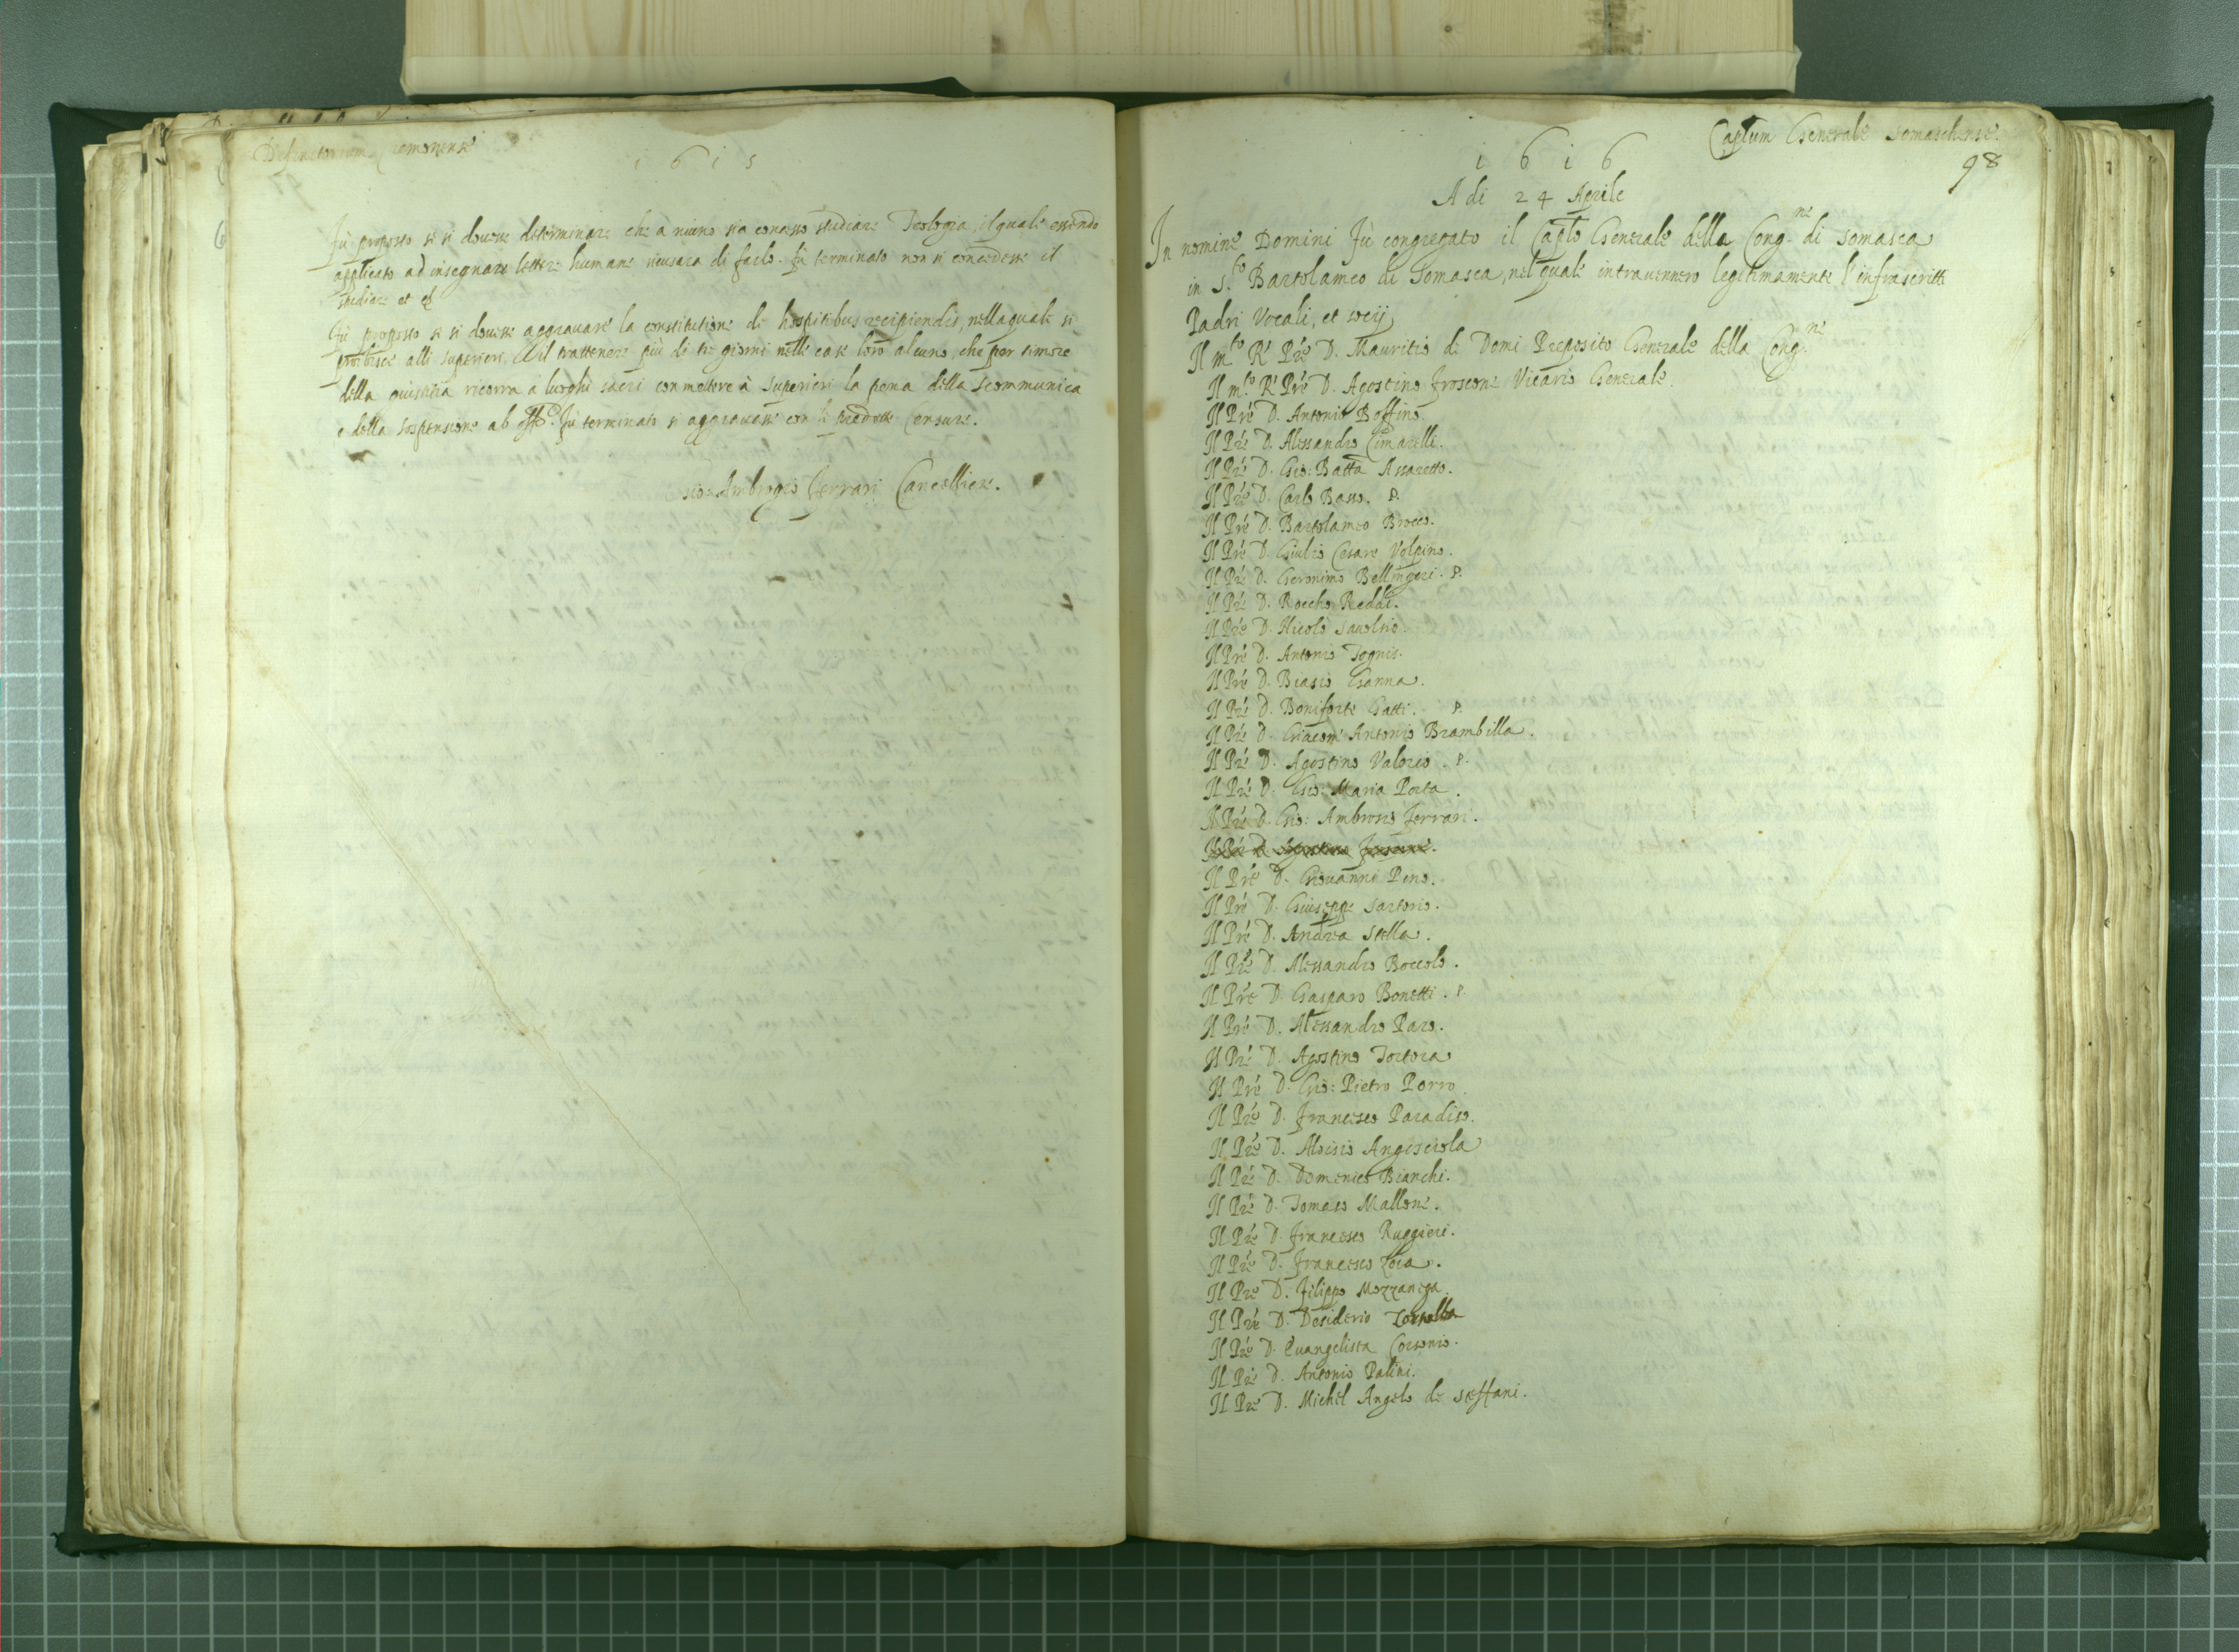 Definitorium Cremonense
1615
Fù proposto se si dovesse determinare che à niuno sia concesso studiare Teologia, il quale essendo
applicato ad insegnare lettere humane ricusara di farlo. Fù terminato non si concedesse il
studiare et
Fù proposto se si dovesse aggravare la constitutione de hospitibus recipiendis, nella quale si
proibisce alli superiori il trattenere più di tre giorni nelle case loro alcuno, che per timore
della giustitia ricorra a luoghi sacri con mettere à superiori la pena della scommunica
e della sospensione ab offo. Fù terminato si aggravasse con le predette censure.
Gio: Ambrogio Ferrari Cancelliere.
Caplum Generale Somaschense.
98
1616
A di 24 Aprile
In nomine Domini Fù congregato il Caplo Generale della Cong.ne di Somasca
in S.to Bartolameo di Somasca, nel quale intravennero legitimamente l'infrascritti
Padri Vocali, et socij
Il m.to R. Pre D. Mauritio de Domi Preposito Generale della Cong.ne
Il m.to R. Pre D. Agostino Froscone Vicario Generale.
Il Pre D. Antonio Boffino.
Il Pre D. Alessandro Cimarelli.
Il Pre D. Gio: Batta Assaretto.
Il Pre D. Carlo Basso. P.
Il Pre D. Bartolameo Brocco.
Il Pre D. Giulio Cesare Volpino.
Il Pre D. Geronimo Bellingeri. P.
Il Pre D. Roccho Redai.
Il Pre D. Nicolò Savolsio.
Il Pre D. Antonio Tognis.
Il Pre D. Biasio Ganna.
Il Pre D. Boniforte Gatti. P.
Il Pre D. Giacom' Antonio Brambilla.
Il Pre D. Agostino Valerio. P.
Il Pre D. Gio: Maria Porta.
Il Pre D. Gio: Ambrosio Ferrari.
Il Pre D. Agostino Froscone.
Il Pre D. Giovanni Pino.
Il Pre D. Giuseppe Sartorio.
Il Pre D. Andrea Stella.
Il Pre D. Alessandro Boccolo.
Il Pre D. Gasparo Bonetti. P.
Il Pre D. Alessandro Paro.
Il Pre D. Agostino Tortora
Il Pre D. Gio: Pietro Porro
Il Pre D. Francesco Paradiso.
Il Pre D. Aloisio Angosciola
Il Pre D. Domenico Bianchi.
Il Pre D. Tomaso Mallone.
Il Pre D. Francesco Ruggieri.
Il Pre D. Francesco Loia.
Il Pre D. Filippo Mozzaniga
Il Pre D. Desiderio
Il Pre D. Evangelista Corsonio.
Il Pre D. Antonio Palini.
Il Pre D. Michel Angelo de Steffani.